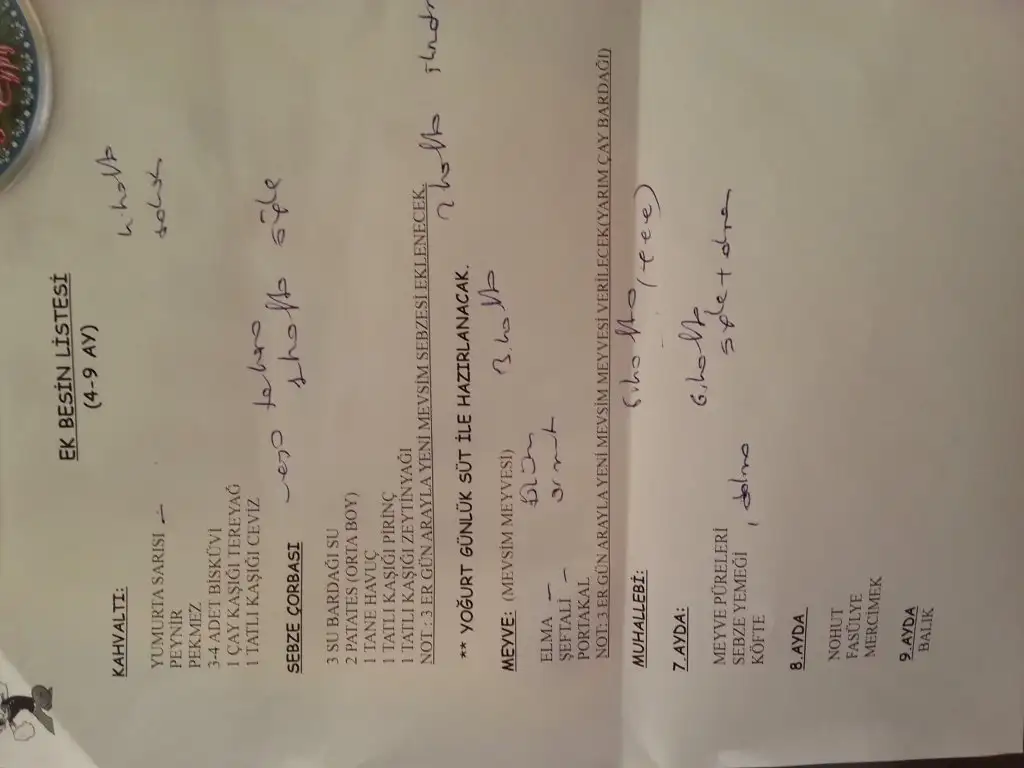 EK BESİN LİSTESİ
(4-9 AY)
KAHVALTI:
4.hafta
sabah
YUMURTA SARISI –
PEYNİR
PEKMEZ
3-4 ADET BİSKÜVİ
1 ÇAY KAŞIĞI TEREYAĞ
1 TATLI KAŞIĞI CEVİZ
veya tahna
SEBZE ÇORBASI
1.hafta öğle
3 SU BARDAĞI SU
2 PATATES (ORTA BOY)
1 TANE HAVUÇ
1 TATLI KAŞIĞI PİRİNÇ
1 TATLI KAŞIĞI ZEYTİNYAĞI
NOT : 3 ER GÜN ARAYLA YENİ MEVSİM SEBZESİ EKLENECEK.
2.hafta ikindi
** YOĞURT GÜNLÜK SÜT İLE HAZIRLANACAK.
MEYVE: (MEVSİM MEYVESİ) 3.hafta
ELMA –
ŞEFTALİ –
armut
PORTAKAL
NOT: 3 ER GÜN ARAYLA YENİ MEVSİM MEYVESİ VERİLECEK(YARIM ÇAY BARDAĞI)
MUHALLEBİ: 5.hafta (gece)
7.AYDA: 6.hafta
MEYVE PÜRELERİ
SEBZE YEMEĞİ , dolma
KÖFTE
8.AYDA
NOHUT
FASÜLYE
MERCİMEK
9.AYDA
BALIK